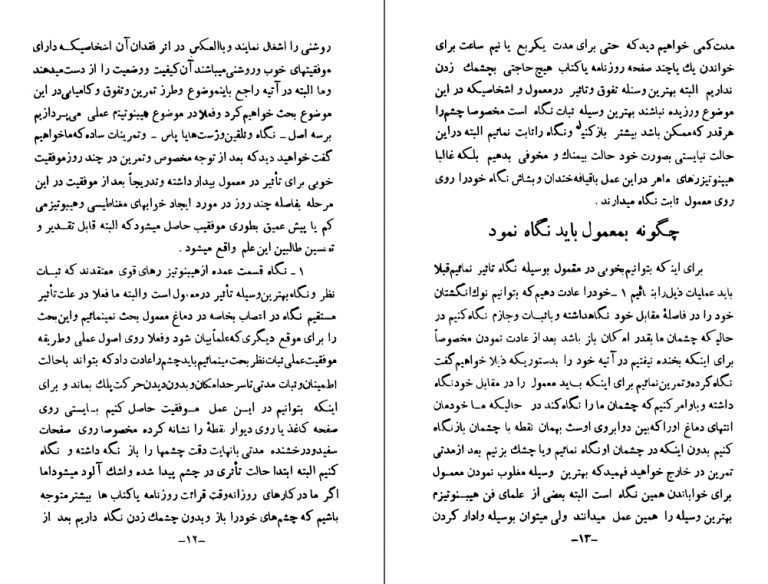 روشنی را اشغال نمایند وباالعکس در اثر فقدان آن اشخاصیکه دارای
موفقیتهای خوب وروشنی میباشند آن کیفیت ووضعیت را از دست میدهند
وما البته در آتیه راجع باینموضوع وطرز تمرین وتفوق وکامیابی در این
موضوع بحث خواهیم کرد وفعلا در موضوع هیپنوتیزم عملی می پردازیم
برسه اصل ـ نگاه وتلقین وژست‌هایا پاس ـ وتمرینات ساده که ماخواهیم
گفت خواهید دید که بعد از توجه مخصوص وتمرین در چند روز موفقیت
خوبی برای تأثیر در معمول بیدار داشته وتدریجاً بعد از موفقیت در این
مرحله بفاصله چند روز در مورد ایجاد خوابهای مغناطیسی وهیبنوتیزمی
کم یا پیش عمیق بطوری موفقیب حاصل میشود که البته قابل تقدیر و
تحسین طالبین این علم واقع میشود .
۱ ـ نگاه قسمت عمده ازهیپنوتیز رهای قوی معتقدند که ثبات
نظر ونگاه بهترین وسیله تأثیر درمعمول است والبته ما فعلا در علت تأثیر
مستقیم نگاه در اعصاب بخاصه در دماغ معمول بحث نمینمائیم واین بحث
را برای موقع دیگری که علماً بیان شود وفعلا روی اصول عملی وطریقه
موفقیت عملی ثبات نظر بحث مینمائیم باید چشم را عادت داد که بتواند باحالت
اطمینان وثبات مدتی تا سرحد امکان وبدون دیدن حرکت پلك بماند و برای
اینکه بتوانیم در ایـن عمل موفقیت حاصل کنیم بایستی روی
صفحه کاغذ یا روی دیوار نقطهٔ را نشانه کرده مخصوصا روی صفحات
سفید ودرخشنده مدتی بانهایت دقت چشمها را باز نگه داشته و نگاه
کنیم البته ابتدا حالت تأثری در چشم پیدا شده واشك آلود میشود اما
اگر ما در کارهای روزانه وقت قرائت روزنامه یاکتاب ها بیشتر متوجه
باشیم که چشم‌های خودرا باز وبدون چشمك زدن نگاه داریم بعد از
ـ۱۲ـ
مدت کمی خواهیم دید که حتی برای مدت یکربع یا نیم ساعت برای
خواندن یك یا چند صفحه روزنامه یاکتاب هیچ حاجتی بچشمك زدن
نداریم البته بهترین وسنله تفوق وتاثیر درمعمول و اشخاصیکه در این
موضوع ورزیده نباشند بهترین وسیله ثبات نگاه است مخصوصا چشم را
هرقدر که ممکن باشد بیشتر بازکنیم ونگاه راثابت نمائیم البته دراین
حالت نبایستی بصورت خود حالت بیمناك و مخوفی بدهیم بلکه غالبا
هیپنوتیزرهای ماهر در این عمل باقیافه خندان وبشاش نگاه خودرا روی
روی معمول ثابت نگاه میدارند .
چگونه بمعمول باید نگاه نمود
برای اینکه بتوانیم بخوبی در مقمول بوسیله نگاه تاثیر نمائیم قبلا
باید عملیات ذیل را بنمائیم ۱ ـ خود را عادت دهیم که بتوانیم نوك انگشتان
خود را در فاصلهٔ مقابل خود نگاهداشته و باثبات وجازم نگاه کنیم در
حالیکه چشمان ما بقدر امکان باز باشد بعد از عادت نمودن مخصوصاً
برای اینکه بخنده نیفتیم در آتیه خود را بدستوریکه ذیلا خواهیم گفت
نگاه کرده وتمرین نمائیم برای اینکه بـاید معمول را در مقابل خود نگاه
داشته و باو امر کنیم که چشمان ما را نگاه کند در حالیکه مـا خودمان
انتهای دماغ اورا که بین دوابروی اوست بهمان نقطه با چشمان باز نگاه
کنیم بدون اینکه در چشمان او نگاه نمائیم ویا چشك بزنیم بعد از مدتی
تمرین در خارج خواهید فهمید که بهترین وسیله مغلوب نمودن معمـول
برای خواباندن همین نگاه است البته بعضی از علمای فن هیپـنوتیزم
بهترین وسیله را همین عمل میدانند ولی میتوان بوسیله وادار کردن
ـ۱۳ـ